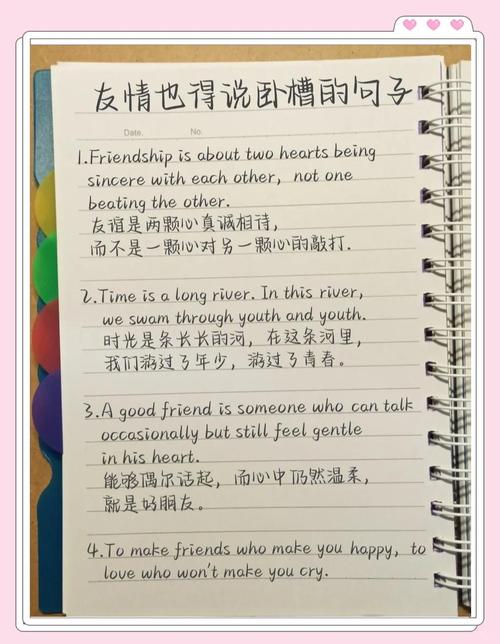 友情也得说卧槽的句子
Date. No.
1.Friendship is about two hearts being
sincere with each other, not one
beating the other.
友谊是两颗心真诚相待，
而不是一颗心对另一颗心的敲打.
2.Time is a long river. In this river,
we swam through youth and youth.
时光是条长长的河，在这条河里，
我们游过了年少，游过了青春。
3.A good friend is someone who can talk
occasionally but still feel gentle
in his heart.
能够偶尔话起，而心中仍然温柔，
就是好朋友。
4.To make friends who make you happy, to
love who won't make you cry.